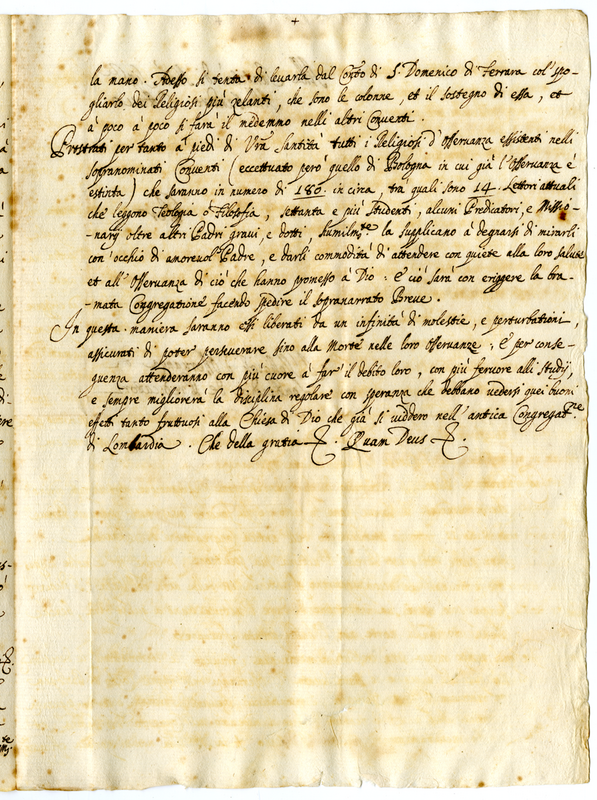 +
la mano. Adesso si tenta di levarla dal Conto di S. Domenico di Ferrara col' spo-
gliarlo dei Religiosi più zelanti, che sono le colonne, et il sostegno di essa, et
à poco à poco si farà il medemmo nelli altri Conventi.
Prostrati per tanto à piedi di Vra Santità tutti i Religiosi d'Osservanza essistenti nelli
sopranominati Conventi (eccettuato però quello di Bologna in cui già l'Osservanza è
estinta) che saranno in numero di 180. in circa, tra quali sono 14. Lettori attuali
che leggono Teologia ò Filosofia, settanta e più studenti, alcuni Predicatori, e Missio-
narij oltre altri Padri gravi, e dotti, humilmte la supplicano à degnarsi di mirarli
con occhio di amorevol Padre, e darli commodità di attendere con quiete alla loro salute
et all'Osservanza di ciò che hanno promesso à Dio: E ciò sarà con eriggere la bra-
mata Congregatione facendo spedire il sopranarrato Breve.
In questa maniera saranno essi liberati da un infinità di molestie, e perturbationi,
assicurati di poter perseverare sino alla Morte nelle loro Osservanze; E per conse-
guenza attenderanno con più cuore à far il debito loro, con più fervore alli studij,
e sempre migliorerà la disciplina regolare con speranza che debbano vedersi quei buoni
effetti tanto fruttuosi alla Chiesa di Dio che già si viddero nell'antica Congregatne
di Lombardia. Che della gratia &. Quam Deus &.